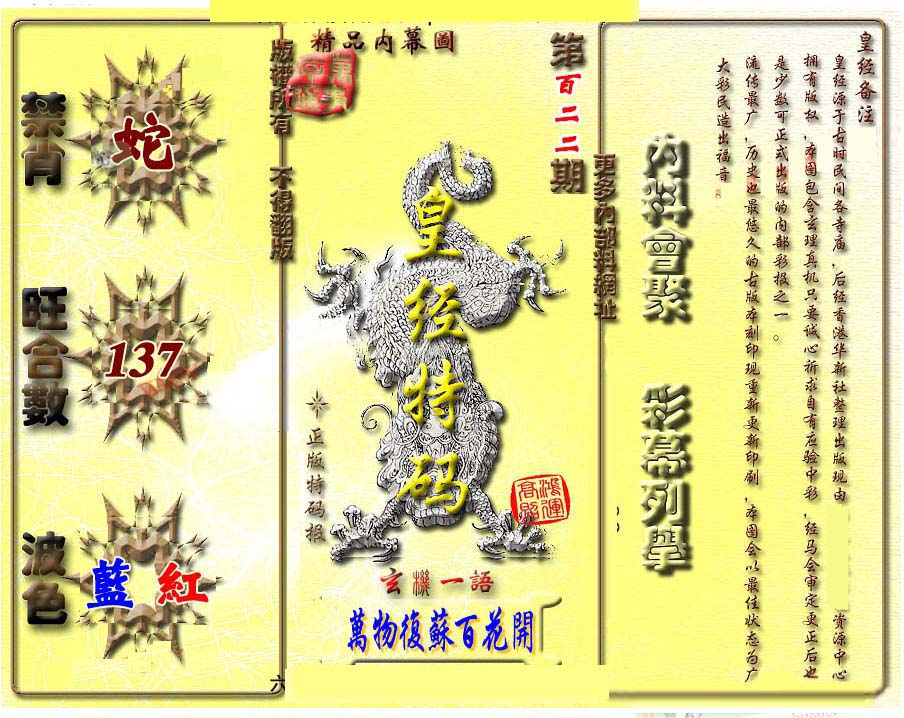 皇经备注
皇经源于古时民间各寺庙,后经香港华新社整理出版现由 资源中心
拥有版权,本图包含玄理真机只要诚心祈求自有应验中彩,经马会审定更正后也
是少数可正式出版的内部彩报之一。
流传最广,历史也最悠久的古版本刻印现重新更新印刷,本图会以最佳状态为广
大彩民造出福音
內料會聚
彩幕列舉
更多內部料網址
第百二二期
精品內幕圖
皇经特码
鴻運
高照
正版特码报
玄機一語
萬物復蘇百花開
版權所有 不得翻版
禁肖
蛇
旺合數
137
波色
藍 紅
六